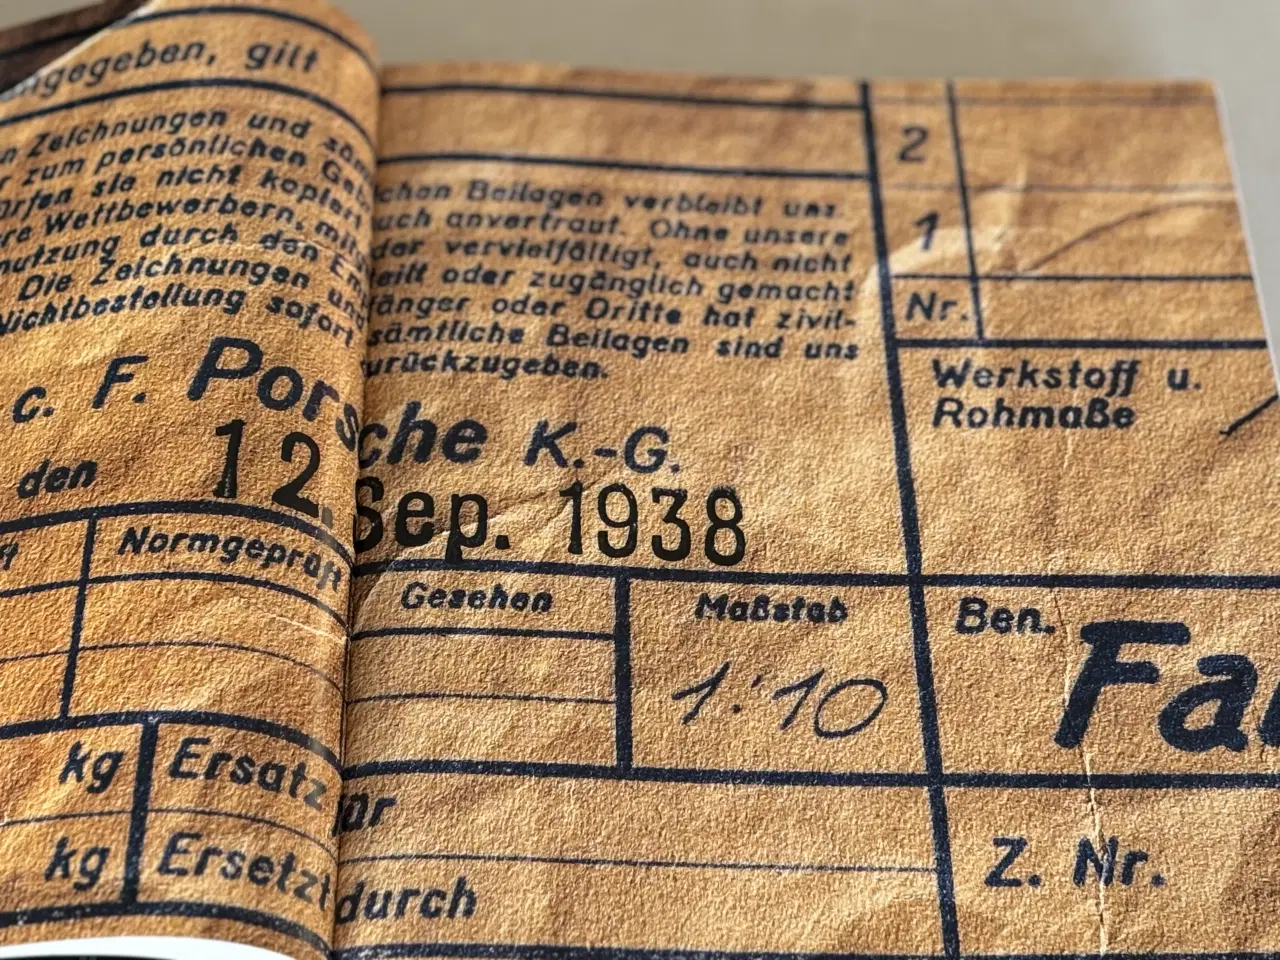 ngegeben, gilt
n Zeichnungen und säm chen Beilagen verbleibt uns.
r zum persönlichen Geb uch anvertraut. Ohne unsere
ürfen sie nicht kopiert der vervielfältigt, auch nicht
re Wettbewerbern, mit eilt oder zugänglich gemacht
nutzung durch den Em fänger oder Dritte hat zivil-
Die Zeichnungen und sämtliche Beilagen sind uns
Nichtbestellung sofort urückzugeben.
2
1
Nr.
Werkstoff u.
Rohmaße
c. F. Porsche K.-G.
den 12. Sep. 1938
Normgeprüft
Gesehen
Maßstab
1:10
Ben. Fa
kg Ersatz für
kg Ersetzt durch
Z. Nr.